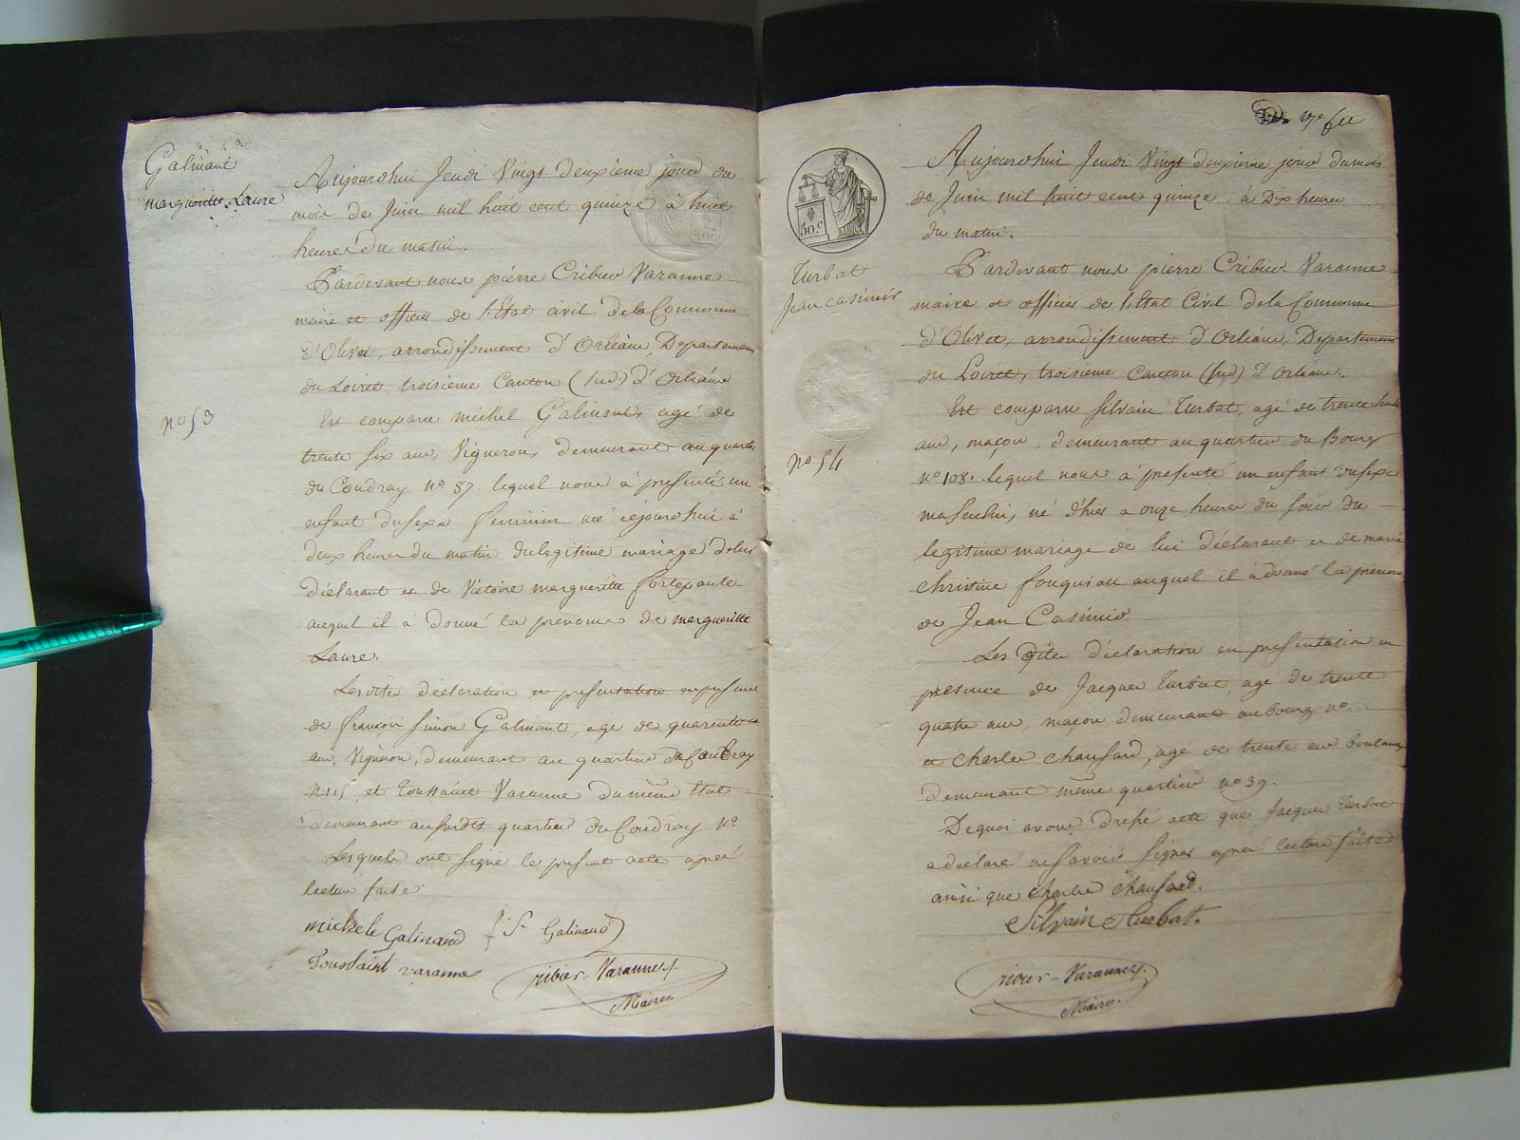 Galinand
margueritte Laure
Aujourdhui Jeudi Vingt deuxième jour du
mois de Juin mil huit cent quinze à huit
heures du matin.
Pardevant nous pierre Cribier Varanne
maire et officier de l'Etat civil de la Commune
d'Olivet, arrondissement d'Orléans, Departement
du Loiret troisieme Canton (sud) d'Orléans
n° 53
Est comparu michel Galinand, agé de
trente six ans, Vigneron, demeurant au quartier
du Coudray n° 57 lequel nous à presenté un
enfant du sexe feminin né cejourdhui à
deux heures du matin du legitime mariage de lui
déclarant et de Victoire margueritte
auquel il a donné les prenoms de margueritte
Laure.
Lesdites déclaration et presentation en presence
de françois simon Galinand, agé de quarente
ans, Vigneron, demeurant au quartier du Coudray
n° 15, et Toussaint Varanne du même Etat
demeurant susdit quartier du Coudray n°
Lesquels ont signé le present acte après
lecture faite.
michele Galinand f S Galinand
Toussaint varanne
Cribier-Varanne
Maire
17e fle
Aujourdhui Jeudi Vingt deuxieme jour du mois
de Juin mil huit cent quinze à Dix heures
du matin.
50 c
Turbat
Jean casimir
Pardevant nous pierre Cribier Varanne
maire et officier de l'Etat Civil de la Commune
d'Olivet, arrondissement d'Orléans, Departement
du Loiret, troisième canton (sud) d'Orléans.
n° 54
Est comparu Silvain Turbat, agé de trente
ans, maçon, demeurant au quartier du Bourg
n° 108. lequel nous à presenté un enfant du sexe
masculin, né d'hier a onze heures du soir du
legitime mariage de lui déclarant et de marie
christine fouqueau auquel il à donné les prenoms
de Jean Casimir
Les dites déclaration et presentation en
presence de Jacques Turbat, agé de trente
quatre ans, maçon demeurant au bourg n°.
et charles chaufard, agé de trente ans
demeurant même quartier n° 39.
De quoi avons dressé acte que Jacques Turbat
a déclaré ne savoir signer après lecture faite
ainsi que charles chaufard.
Silvain Turbat.
Cribier-Varanne
Maire.